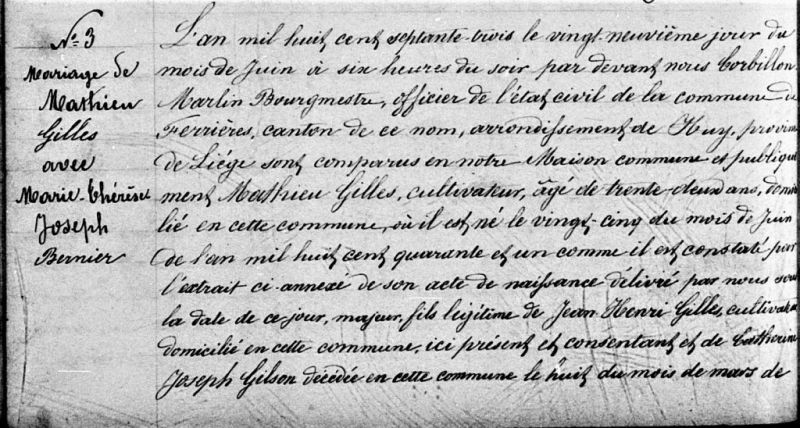 N° 3
Mariage de
Mathieu
Gilles
avec
Marie-Thérèse
Joseph
Bernier
L'an mil huit cent septante-trois le vingt-neuvième jour du
mois de Juin à six heures du soir par devant nous Corbillon
Martin Bourgmestre, officier de l'état civil de la commune de
Ferrières, canton de ce nom, arrondissement de Huy, provin
de Liége sont comparus en notre Maison commune et publique
ment Mathieu Gilles, cultivateur, âgé de trente-deux ans, domi
lié en cette commune, où il est né le vingt-cinq du mois de Juin
de l'an mil huit cent quarante et un comme il est constaté par
l'extrait ci-annexé de son acte de naissance délivré par nous sous
la date de ce jour, majeur, fils légitime de Jean Henri Gilles, cultivate
domicilié en cette commune, ici présent et consentant et de Catherine
Joseph Gilson décédée en cette commune le huit du mois de mars de